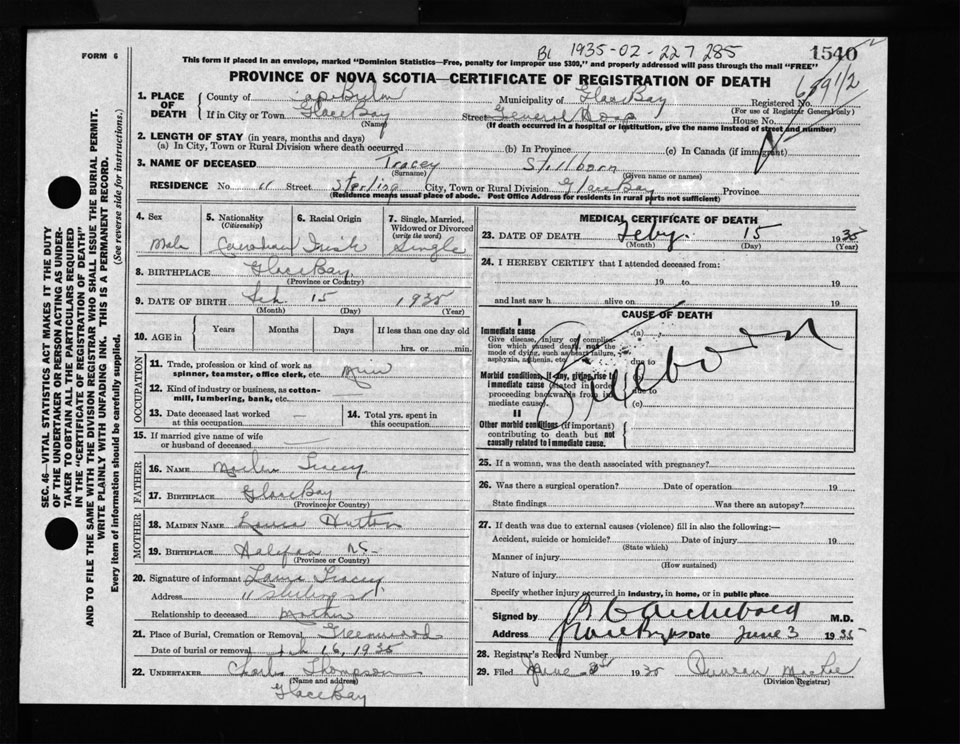 FORM 6
BL 1935-02-227285
1540
659 1/2
This form if placed in an envelope, marked "Dominion Statistics—Free, penalty for improper use $300," and properly addressed will pass through the mail "FREE"
PROVINCE OF NOVA SCOTIA—CERTIFICATE OF REGISTRATION OF DEATH
1. PLACE OF DEATH
County of Cape Breton Municipality of Glace Bay Registered No.
(For use of Registrar General only)
If in City or Town Glace Bay Street General Hosp House No.
(Name) (If death occurred in a hospital or institution, give the name instead of street and number)
2. LENGTH OF STAY (in years, months and days)
(a) In City, Town or Rural Division where death occurred (b) In Province (c) In Canada (if immigrant)
3. NAME OF DECEASED Tracey Stillborn
(Surname) (Given name or names)
RESIDENCE No. 11 Street Sterling City, Town or Rural Division Glace Bay Province
(Residence means usual place of abode. Post Office Address for residents in rural parts not sufficient)
4. Sex
Male
5. Nationality
(Citizenship)
Canadian
6. Racial Origin
Irish
7. Single, Married, Widowed or Divorced
(write the word)
Single
8. BIRTHPLACE Glace Bay
(Province or Country)
9. DATE OF BIRTH Feb 15 1935
(Month) (Day) (Year)
10. AGE in
Years Months Days If less than one day old
hrs. or min.
OCCUPATION
11. Trade, profession or kind of work as
spinner, teamster, office clerk, etc.
12. Kind of industry or business, as cotton-
mill, lumbering, bank, etc.
13. Date deceased last worked
at this occupation
14. Total yrs. spent in
this occupation
15. If married give name of wife
or husband of deceased
FATHER
16. NAME Tracey
17. BIRTHPLACE Glace Bay
(Province or Country)
MOTHER
18. MAIDEN NAME Hutton
19. BIRTHPLACE Halifax NS
(Province or Country)
20. Signature of informant Tracey
Address 11 Sterling st
Relationship to deceased Mother
21. Place of Burial, Cremation or Removal Greenwood
Date of burial or removal Feb 16, 1935
22. UNDERTAKER Charles Thompson
(Name and address)
Glace Bay
MEDICAL CERTIFICATE OF DEATH
23. DATE OF DEATH Feby. 15 1935
(Month) (Day) (Year)
24. I HEREBY CERTIFY that I attended deceased from:
19 to 19
and last saw h alive on 19
CAUSE OF DEATH
I
Immediate cause
Give disease, injury or complica-
tion which caused death, not the
mode of dying, such as heart failure,
asphyxia, asthenia, etc.
(a)
due to
Stillborn
Morbid conditions, if any, giving rise to
immediate cause (stated in order
proceeding backwards from im-
mediate cause).
(b)
due to
(c)
II
Other morbid conditions (if important)
contributing to death but not
causally related to immediate cause.
25. If a woman, was the death associated with pregnancy?
26. Was there a surgical operation? Date of operation 19
State findings Was there an autopsy?
27. If death was due to external causes (violence) fill in also the following:—
Accident, suicide or homicide? Date of injury 19
(State which)
Manner of injury
(How sustained)
Nature of injury
Specify whether injury occurred in industry, in home, or in public place
Signed by Archibald M.D.
Address Glace Bay NS Date June 3 1935
28. Registrar's Record Number
29. Filed June 3 1935 Duncan MacRae
(Division Registrar)
SEC. 46—VITAL STATISTICS ACT MAKES IT THE DUTY
OF THE UNDERTAKER OR PERSON ACTING AS UNDER-
TAKER TO OBTAIN ALL THE PARTICULARS REQUIRED
IN THE "CERTIFICATE OF REGISTRATION OF DEATH"
AND TO FILE THE SAME WITH THE DIVISION REGISTRAR WHO SHALL ISSUE THE BURIAL PERMIT.
WRITE PLAINLY WITH UNFADING INK. THIS IS A PERMANENT RECORD.
Every item of information should be carefully supplied. (See reverse side for instructions.)